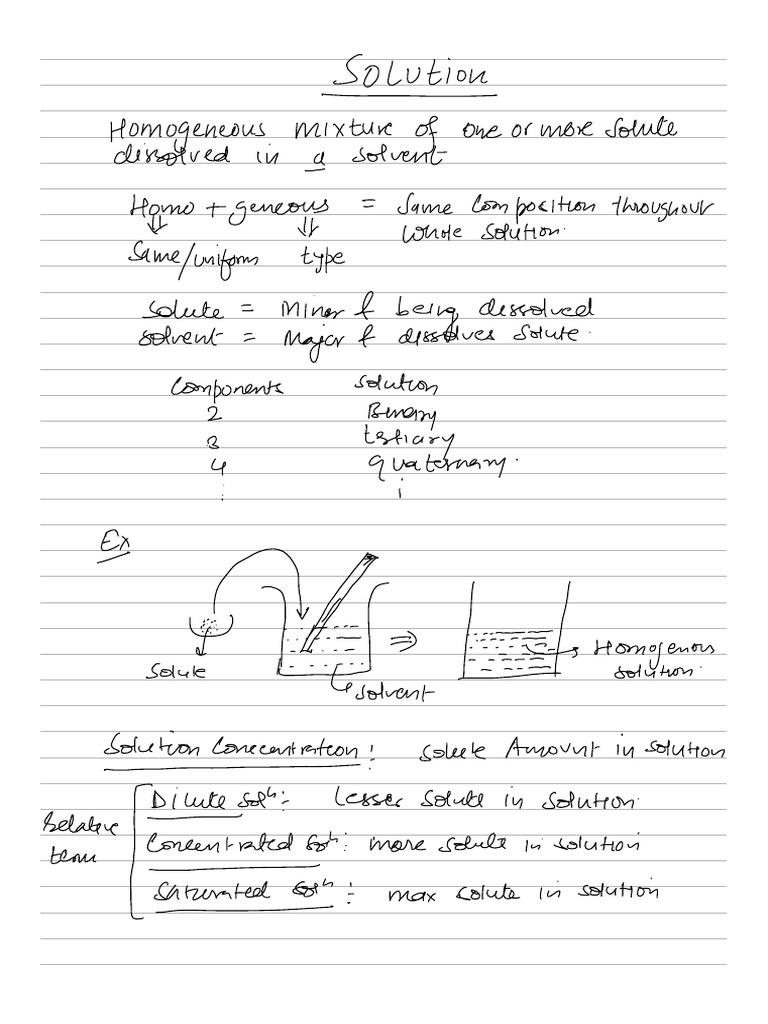 Solution
Homogeneous mixture of one or more solute
dissolved in a solvent
Homo + geneous = Same composition throughout
⇓ ⇓ whole solution.
Same/uniform type
solute = Minor & being dissolved
solvent = Major & dissolves solute.
Components Solution
2 Binary
3 tertiary
4 quaternary.
⋮ ⋮
Ex
⇒ → Homogenous
Solute solution.
solvent
Solution Concentration : solute Amount in solution
Dilute solⁿ :- lesser solute in solution.
Relative
Concentrated solⁿ : more solute in solution
term
Saturated solⁿ :- max solute in solution